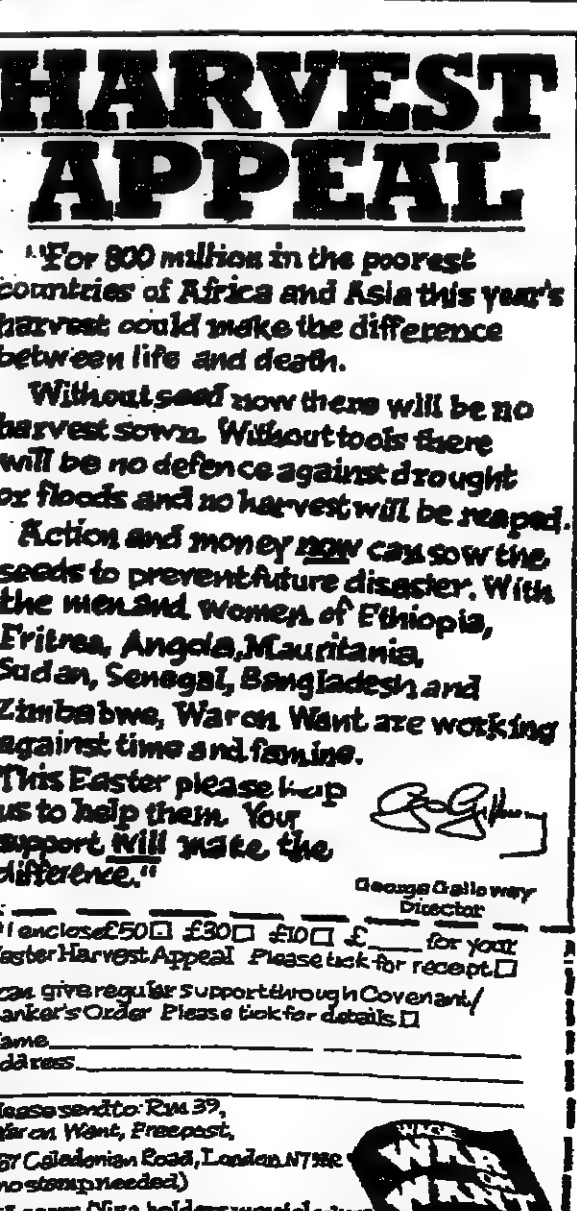 HARVEST
APPEAL
"For 800 million in the poorest
countries of Africa and Asia this year's
harvest could make the difference
between life and death.
Without seed now there will be no
harvest sown. Without tools there
will be no defence against drought
or floods and no harvest will be reaped.
Action and money now can sow the
seeds to prevent future disaster. With
the men and women of Ethiopia,
Eritrea, Angola, Mauritania,
Sudan, Senegal, Bangladesh and
Zimbabwe, War on Want are working
against time and famine.
This Easter please help
us to help them. Your
support will make the
difference."
George Galloway
Director
I enclose £50 £30 £10 £____ for your
Easter Harvest Appeal Please tick for receipt
can give regular support through Covenant/
Banker's Order Please tick for details
Name
Address
Please send to: Rm 39,
War on Want, Freepost,
Caledonian Road, London N7 9BR
no stamp needed)
WAGE
WAR
WANT
holders